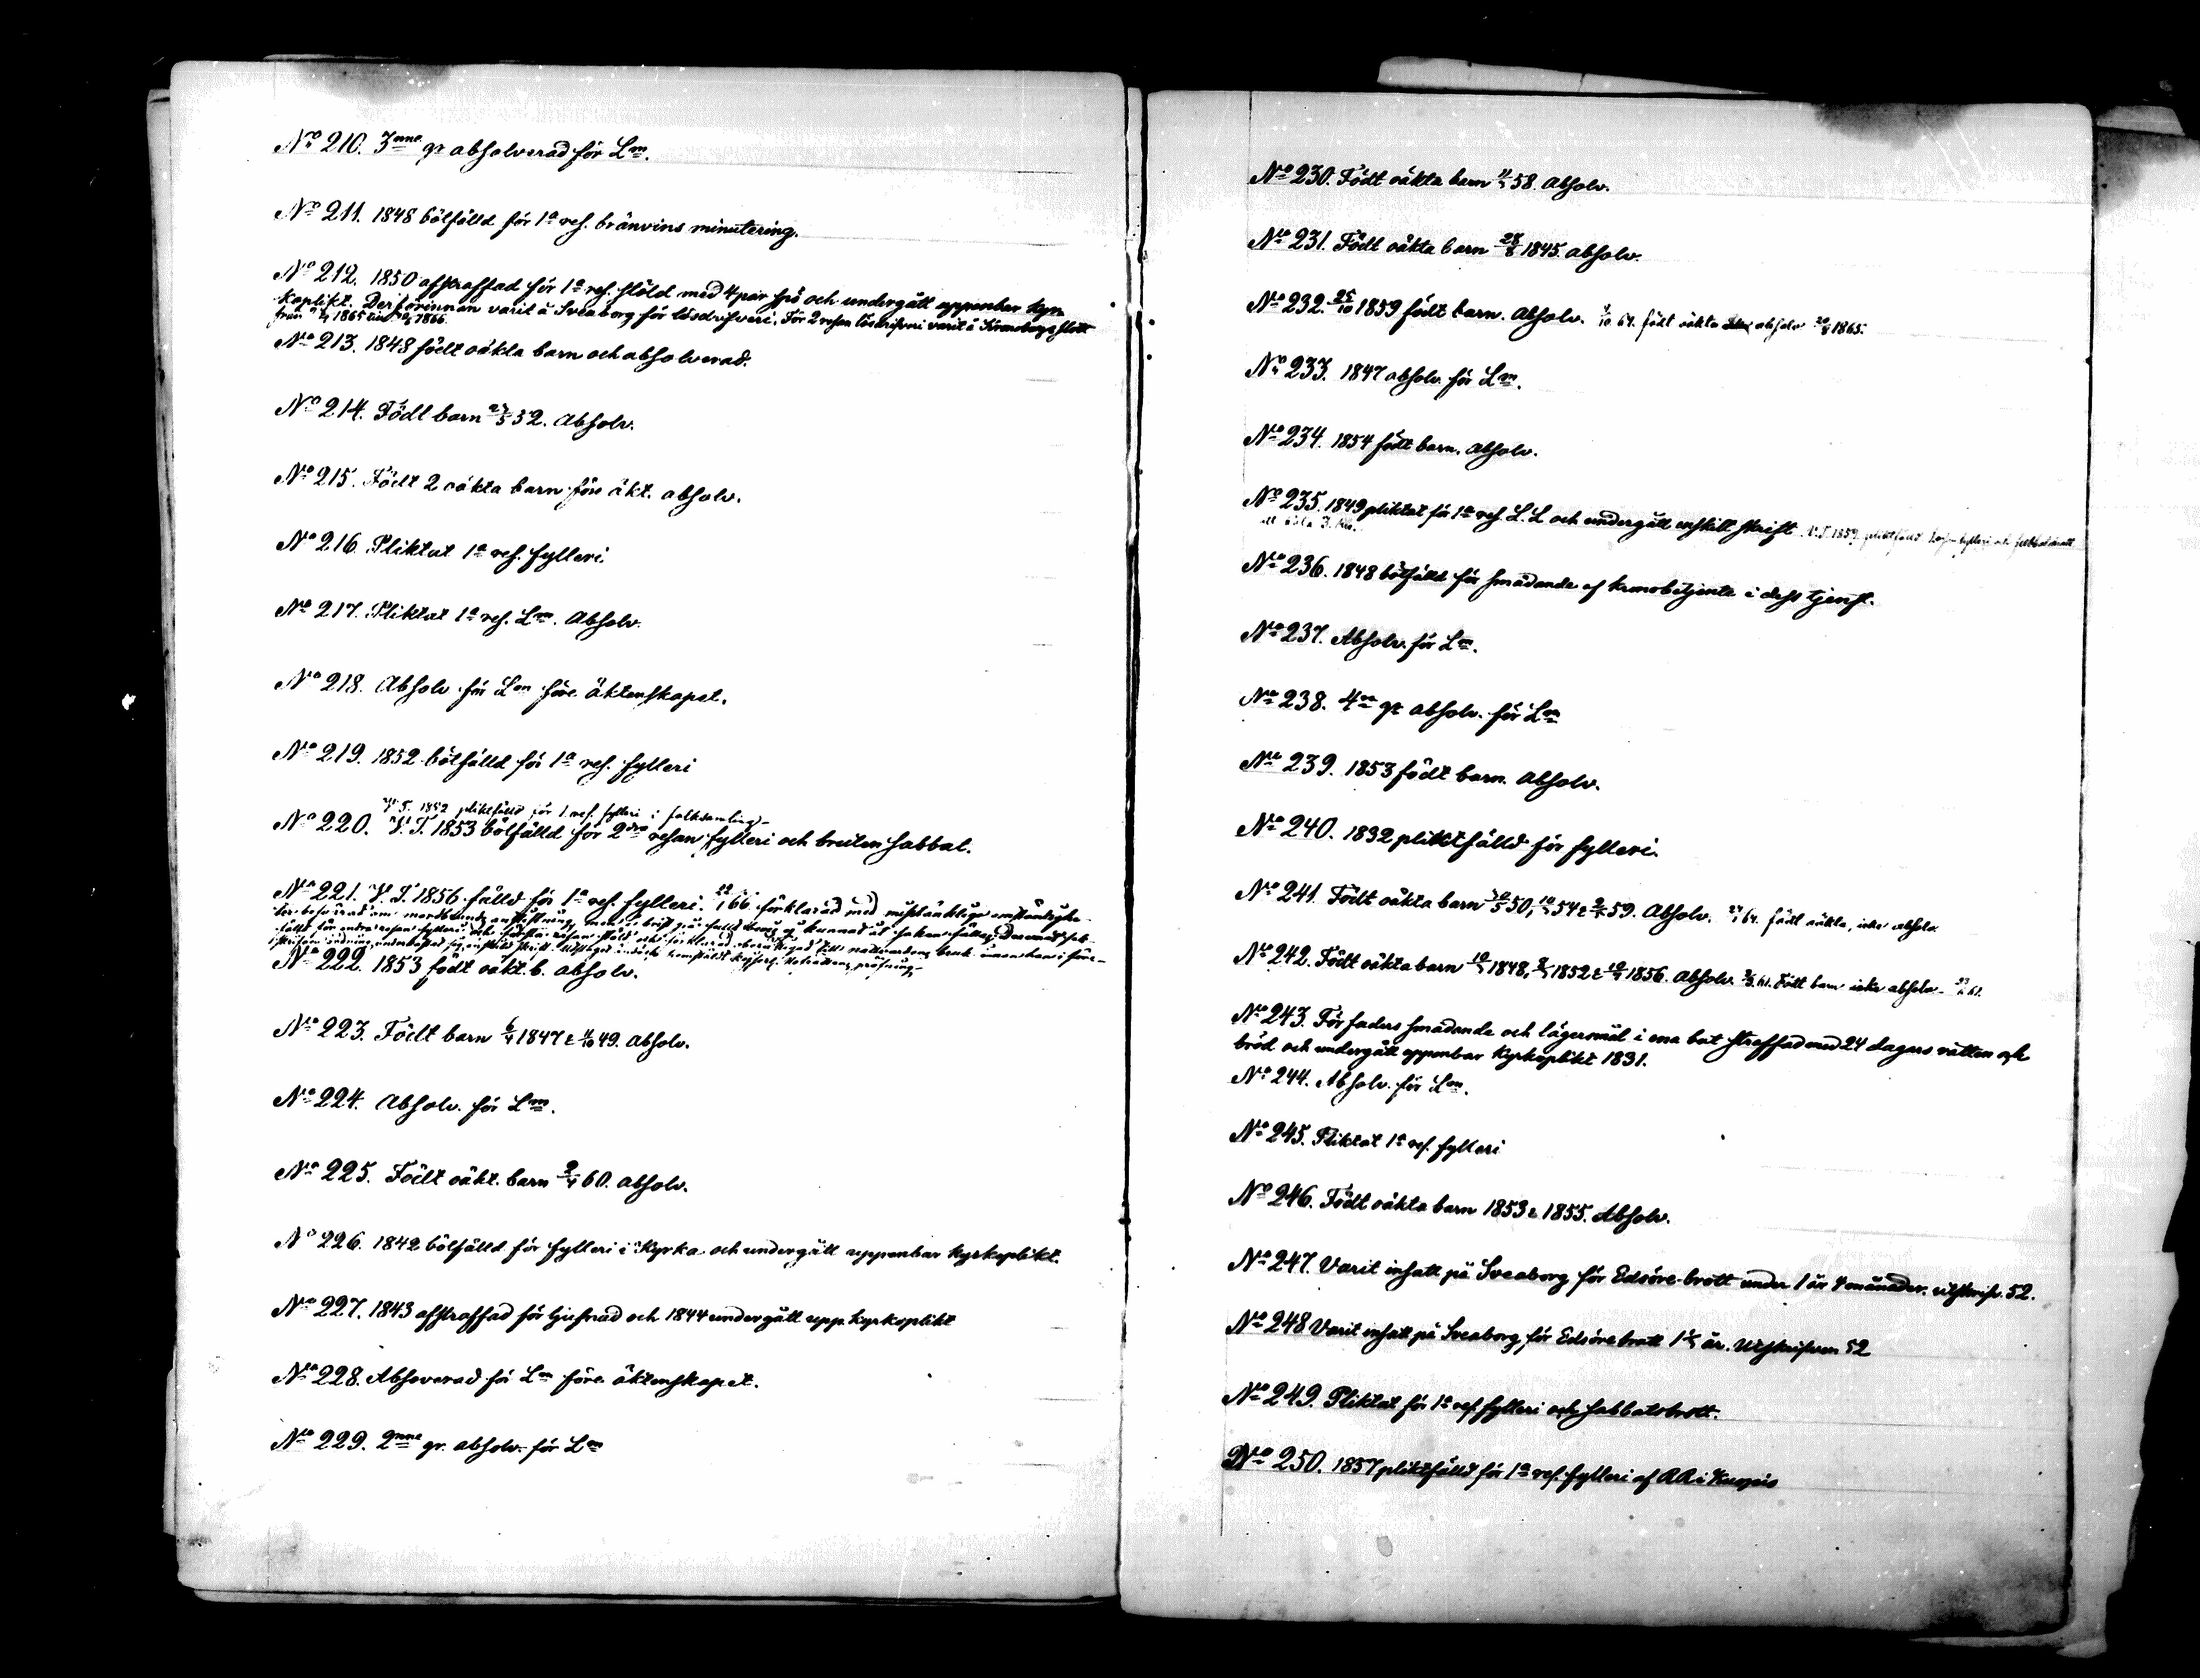 No 210. 3nne gr absolverad för Lm.
No 211. 1848 bötfälld för 1a res. bränvins minutering.
No 212. 1850 afstraffad för 1a res. stöld med 4 par spö och undergått uppenbar kyr-
koplikt. Derförinnan varit å Sveaborg för lösdrifveri. För 2 resan lösdrifveri varit å Slott
från 1865 till 1866.
No 213. 1848 födt oäkta barn och absolverad.
No 214. Födt barn 52. Absolv.
No 215. Födt 2 oäkta barn före äkt. absolv.
No 216. Pliktat 1a res. fylleri.
No 217. Pliktat 1a res. Lm. Absolv.
No 218. Absolv för Lm före äktenskapet.
No 219. 1852 bötfälld för 1a res. fylleri
V.T. 1852 pliktfälld för 1 res. fylleri i folksamling
No 220. V.T. 1853 bötfälld för 2dra resan fylleri och bruten sabbat.
No 221. V.T. 1856 fälld för 1a res. fylleri. 66 förklarad med misstänklige omständighe-
ter besvärad om mordbrands anstiftning, men i brist på fulla bevis ej kunnad åt saken fällas. Dessutom
fälld för andra resan fylleri och första resan stöld och förklarad ovärdig till
No 222. 1853 födt oäkt. b. absolv.
No 223. Födt barn 6/4 1847 & 49. absolv.
No 224. Absolv. för Lm.
No 225. Födt oäkt. barn 2/4 60. absolv.
No 226. 1842 bötfälld för fylleri i Kyrka och undergått uppenbar kyrkoplikt.
No 227. 1843 afstraffad för tjufnad och 1844 undergått upp. kyrkoplikt
No 228. Absoverad för Lm före äktenskapet.
No 229. 2nne gr. absolv. för Lm
No 230. Födt oäkta barn 58. Absolv.
No 231. Födt oäkta barn 28/8 1845. absolv.
No 232. 25/10 1859 födt barn. Absolv. 64. födt oäkta absolv 1865.
No 233. 1847 absolv. för Lm.
No 234. 1854 födt barn. Absolv.
No 235. 1849 pliktat för 1a res. L.L och undergått enskilt skrift. V.T. 1859 pliktfälld fylleri och sabbatsbrott
No 236. 1848 bötfälld för smädande af kronobetjente i dess tjenst.
No 237. Absolv. för Lm.
No 238. 4ra gr absolv. för Lm
No 239. 1853 födt barn. Absolv.
No 240. 1832 pliktfälld för fylleri.
No 241. Födt oäkta barn 50, 54 & 59. Absolv. 64. födt oäkta, icke absolv
No 242. Födt oäkta barn 1848, 1852 & 1856. Absolv. 61. Födt barn icke absolv. 61.
No 243. För faders smädande och lägersmål i ena bot straffad med 24 dagars vatten och
bröd och undergått uppenbar kyrkoplikt 1831.
No 244. Absolv. för Lm.
No 245. Pliktat 1a res. fylleri
No 246. Födt oäkta barn 1853 & 1855. Absolv.
No 247. Varit insatt på Sveaborg för Edsöre-brott under 1 år 4 månader. utskrifv. 52.
No 248 Varit insatt på Sveaborg för Edsörebrott 1 1/2 år. Utskrifven 52
No 249. Pliktat för 1a res. fylleri och sabbatsbrott.
No 250. 1857 pliktfälld för 1a res. fylleri af RR i Kuopio